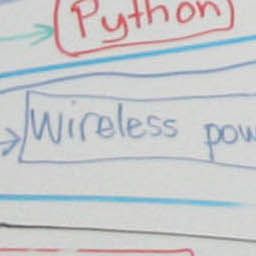 Python
Wireless pow